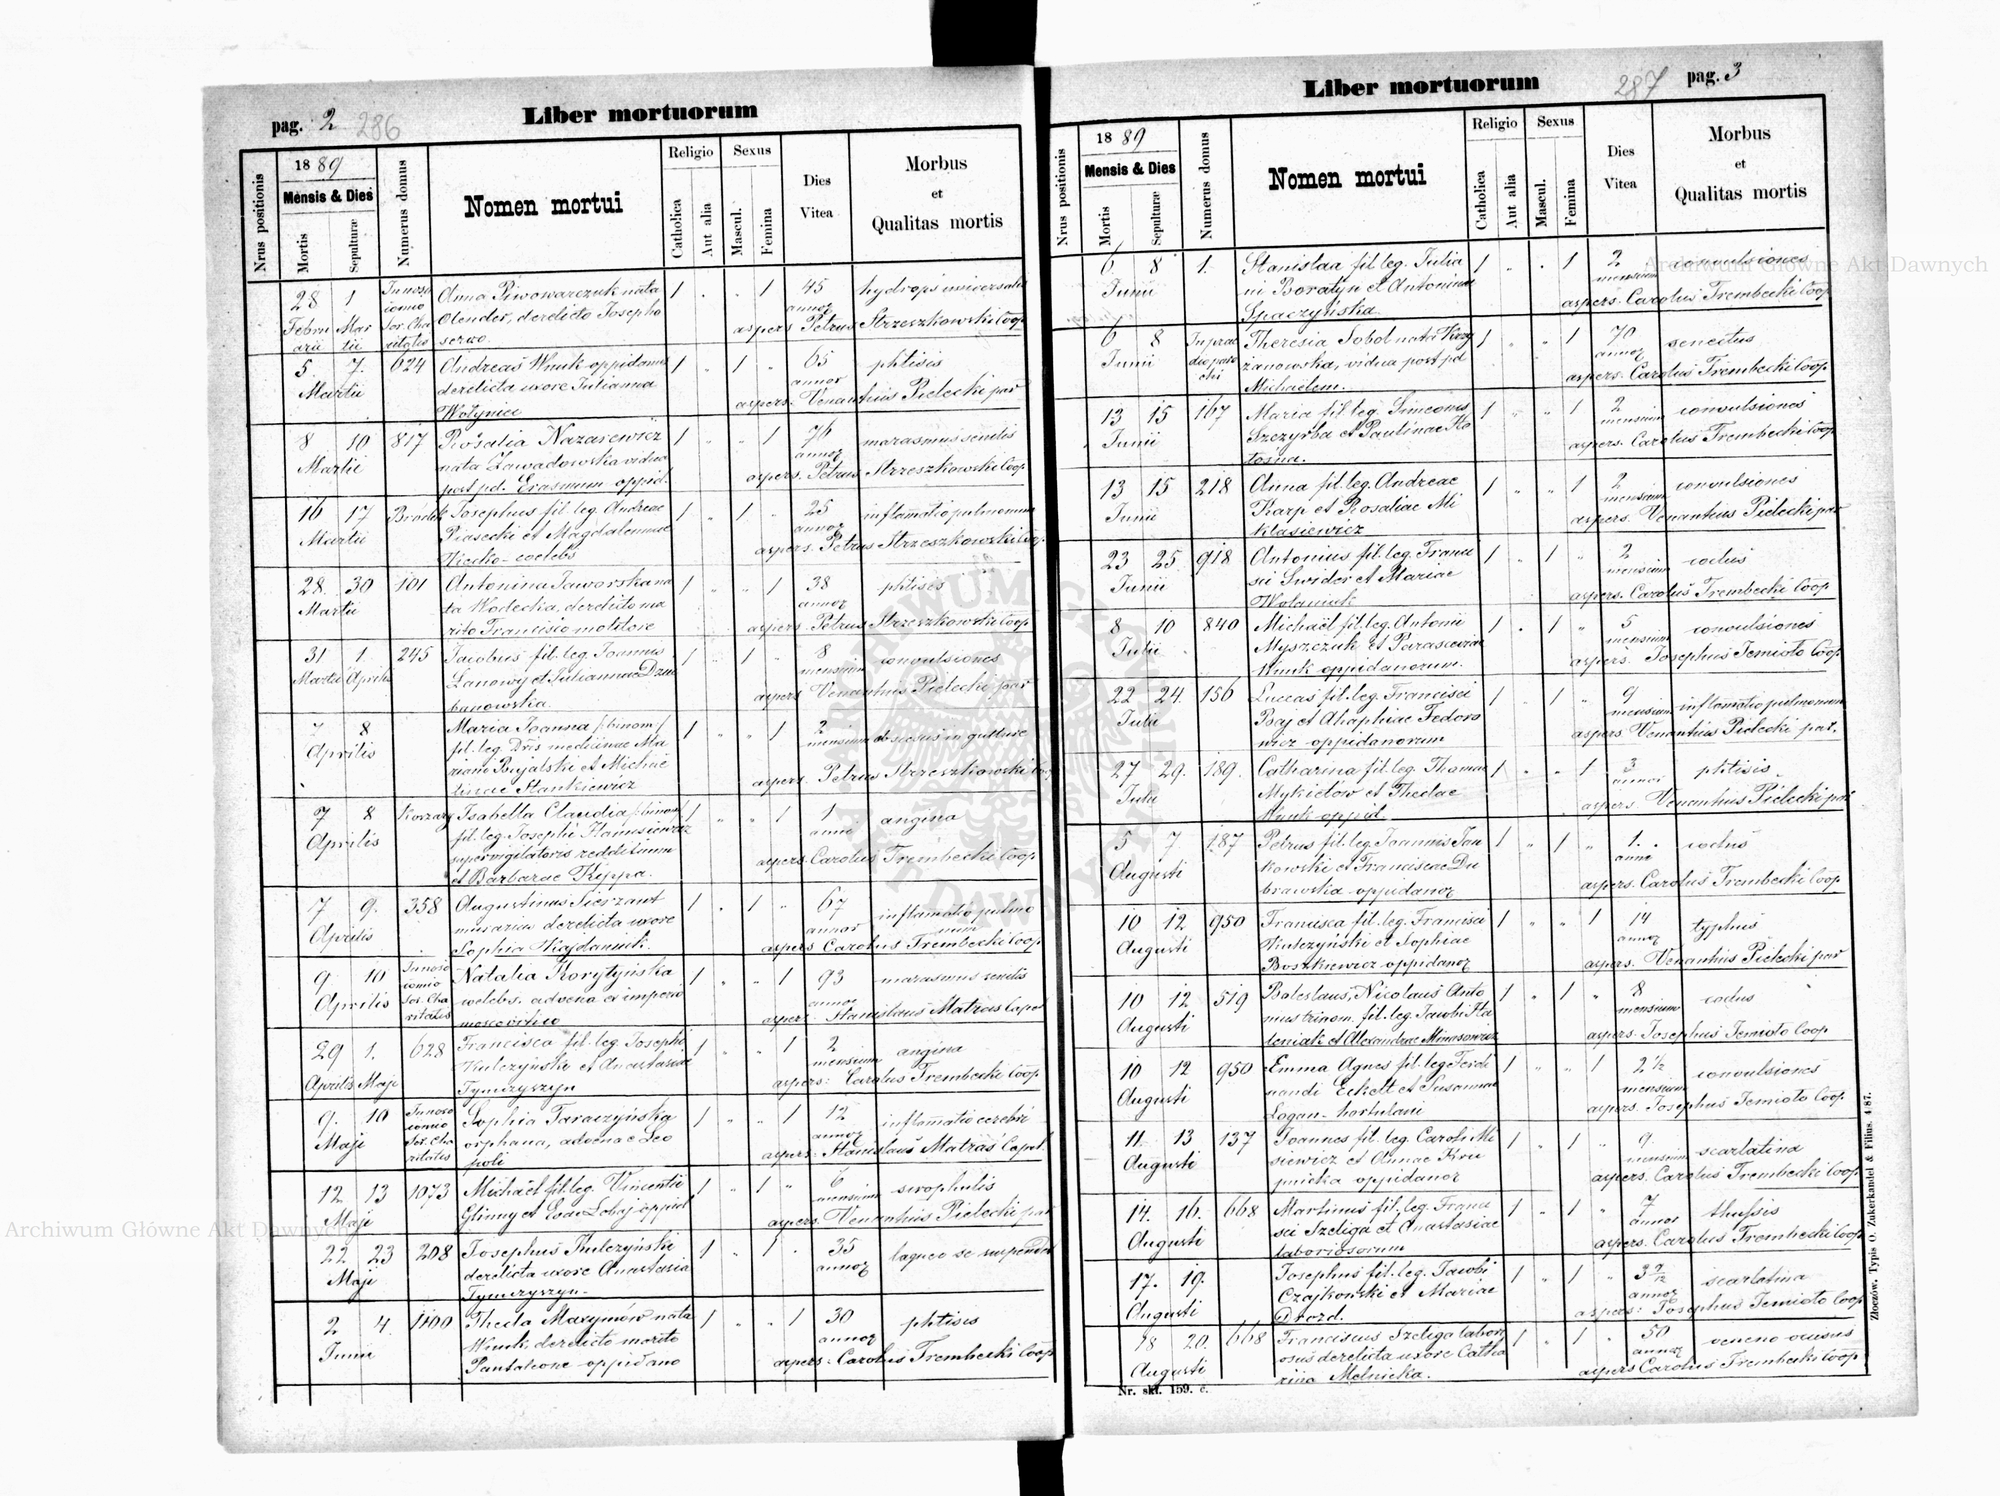 pag. 2 286
Liber mortuorum
Nrus positionis
1889
Mensis & Dies
Mortis
Sepulturæ
Numerus domus
Nomen mortui
Religio
Catholica
Aut alia
Sexus
Mascul.
Femina
Dies
Vitea
Morbus
et
Qualitas mortis
28 1 Anna Piwowarczuk nata 1 1 45 hydrops universalis
Februarii Martii Olender, derelicto Josepho annor
aspers Petrus Strzeszkowski Coop
5 7. 624 Andreas Wnuk oppidanus 1 1 65 phtisis
Martii derelicta uxore Julianna annor
Wołyniec aspers. Venantius Pielecki par
8 10 817 Rosalia Nazarewicz 1 1 76 marasmus senilis
Martii nata Zawadowska vidua annor
post pd. Erasmum oppid. aspers. Petrus Strzeszkowski Coop
16 17 Josephus fil. leg. Andreae 1 1 25 inflamatio pulmonum
Martii Piasecki et Magdalennae annor
coelebs aspers. Petrus Strzeszkowski Coop.
28. 30 101 Antonina Jaworska na 1 1 38 phtisis
Martii ta Wodecka, derelicto ma annor
rito Francisco aspers. Petrus Strzeszkowski Coop
31 1. 245 Jacobus fil. leg. Joannis 1 1 8 convulsiones
Martii Aprilis Lanowy et Juliannae Dziu mensium
banowska. aspers Venantius Pielecki par
7 8 Maria Joanna /binom/ 1 1 2
Aprilis fil. leg. Dris medicinae Ma mensium abscesus in guture
riani Bujalski et Michae
linae Stankiewicz aspers. Petrus Strzeszkowski Coop
7 8 Isabella Claudia /binom/ 1 1 1 angina
Aprilis fil. leg. Josephi Hanusiewicz anni
supervigilatoris reddituum
et Barbarae Krippa. aspers. Carolus Trembecki Coop
7 9. 358 Augustinus Sierzant 1 1 67 inflamatio pulmo
Aprilis murarius derelicta uxore annor num
Sophia aspers Carolus Trembecki Coop
9. 10 Natalia Korytyńska 1 1 93 marasmus senilis
Aprilis coelebs. advena ex imperio annor
moscovitico aspers. Stanislaus Matras Capel
29 1. 628 Francisca fil. leg. Josephi 1 1 2 angina
Aprilis Maji Kulczyński et Anastasiae mensium
Tymczyszyn aspers: Carolus Trembecki Coop
9. 10 Sophia Taraczyńska 1 1 12 inflamatio cerebri
Maji orphana, advena e Leo annor
poli aspers: Stanislaus Matras Capel.
12 13 1073 Michaël fil. leg. Vincentii 1 1 6 scrophulis
Maji Glinny et Evae Lobaj oppid mensium
aspers. Venantius Pielecki par
22 23 208 Josephus Kulczyński 1 1 35 laqueo se suspendit
Maji derelicta uxore Anastasia annor
Tymczyszyn.
2 4 1100 Thecla Maxymów nata 1 1 30 phtisis
Junii Wnuk derelicto marito annor
Pantaleone oppidano aspers: Carolus Trembecki Coop
Liber mortuorum
287 pag. 3
Nrus positionis
1889
Mensis & Dies
Mortis
Sepulturæ
Numerus domus
Nomen mortui
Religio
Catholica
Aut alia
Sexus
Mascul.
Femina
Dies
Vitea
Morbus
et
Qualitas mortis
6 8 1. Stanislaa fil. leg. Julia 1 1 2 convulsiones
Junii ni Boratyn et Antoninae mensium
Spaczyńska aspers. Carolus Trembecki Coop
6 8 Theresia Sobol nata Krzy 1 1 70 senectus
Junii żanowska, vidua post pd annor
Michaëlem. aspers. Carolus Trembecki Coop
13 15 167 Maria fil. leg. Simeonis 1 1 2 convulsiones
Junii Szczyrba et Paulinae Ko mensium
aspers. Carolus Trembecki Coop
13 15 218 Anna fil. leg. Andreae 1 1 2 convulsiones
Junii Karp et Rosaliae Mi mensium
klasiewicz aspers. Venantius Pielecki par
23 25. 918 Antonius fil. leg. Franci 1 1 2 codus
Junii sci Swider et Mariae mensium
Wołaniuk aspers. Carolus Trembecki Coop
8 10 840 Michaël fil. leg. Antonii 1 1 5 convulsiones
Julii Myszczuk et Parasceviae mensium
Wnuk oppidanorum. aspers. Josephus Temioto Coop
22 24. 156 Luccas fil. leg. Francisci 1 1 9 inflamatio pulmonum
Julii Baj et Ahaphiae Fedoro mensium
wicz oppidanorum aspers. Venantius Pielecki par.
27 29. 189. Catharina fil. leg. Thomae 1 1 3 phtisis
Julii Mykietów et Theclae annor
Wnuk oppid. aspers. Venantius Pielecki par
5 7 187 Petrus fil. leg. Joannis Jan 1 1 1. codus
Augusti kowski et Franciscae Du anni
brawska oppidanor aspers. Carolus Trembecki Coop
10 12 950 Francisca fil. leg. Francisci 1 1 14 typhus
Augusti Kulczyński et Sophiae annor
Boszkiewicz oppidanor aspers. Venantius Pielecki par
10 12 519 Boleslaus, Nicolaus Anto 1 1 8 codus
Augusti nius trinom. fil. leg. Jacobi Ha mensium
et Alexandrae Minasowicz aspers. Josephus Temioto Coop
10 12 950 Emma Agnes fil. leg. Ferdi 1 1 2½ convulsiones
Augusti nandi Eckelt et Susannae mensium
Logan - hortulani aspers. Josephus Temioto Coop
11. 13 137 Joannes fil. leg. Caroli Mi 1 1 9. scarlatina
Augusti siewicz et Annae Kru mensium
pnicka oppidanor aspers. Carolus Trembecki Coop
14. 16. 668 Martinus fil. leg. Franci 1 1 7
Augusti sci Szeliga et Anastasiae annor
laboriosorum aspers. Carolus Trembecki Coop
17. 19. Josephus fil. leg. Jacobi 1 1 scarlatina
Augusti Czajkowski et Mariae annor
Drozd. aspers: Josephus Temioto Coop
18 20. 668 Franciscus Szeliga labori 1 1 50 veneno ocisus
Augusti osus derelicta uxore Catha annor
rina Melnicka. aspers Carolus Trembecki Coop
Nr. skł. 159. c.
Złoczów. Typis O. Zukerkandel & Filius. 4/87.
Archiwum Główne Akt Dawnych
Archiwum Główne Akt Dawnych
ARCHIWUM GŁÓWNE AKT DAWNYCH